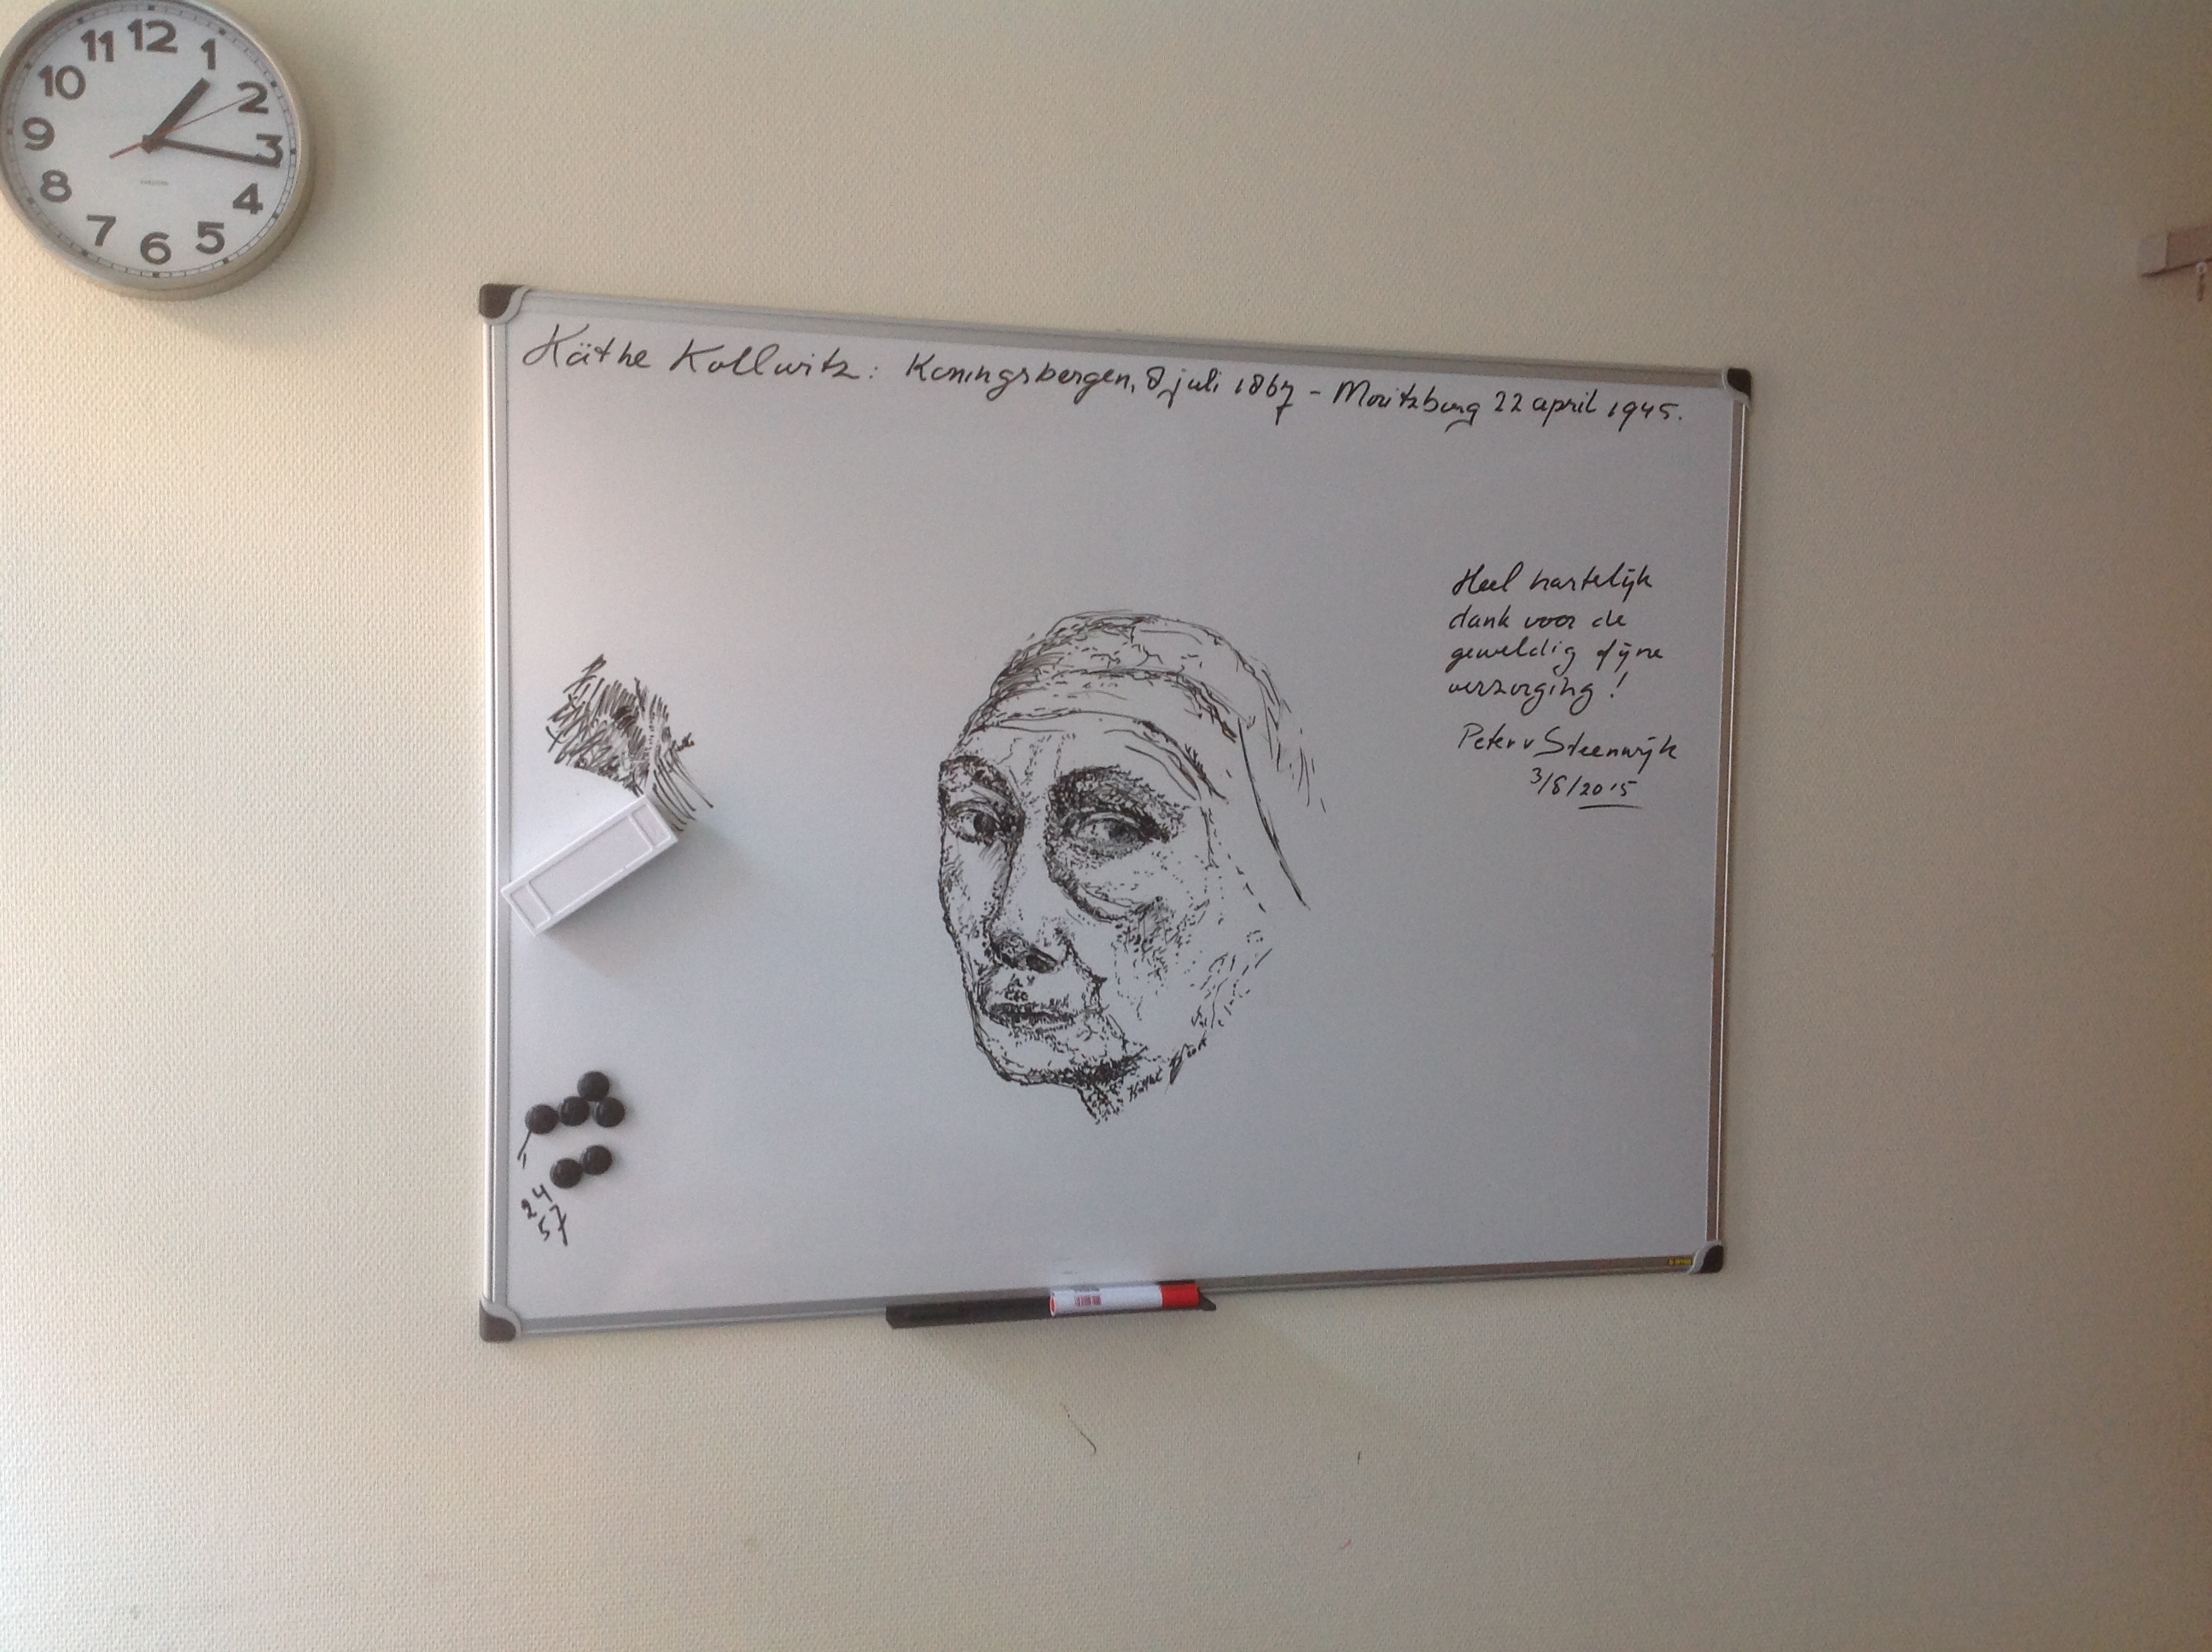 11 12 1
10 2
9 3
8 4
7 6 5
Käthe Kollwitz: Koningsbergen, 8 juli 1867 - Moritzburg 22 april 1945.
Heel hartelijk
dank voor de
geweldig fijne
verzorging!
Peter v Steenwijk
3/8/2015
24
57